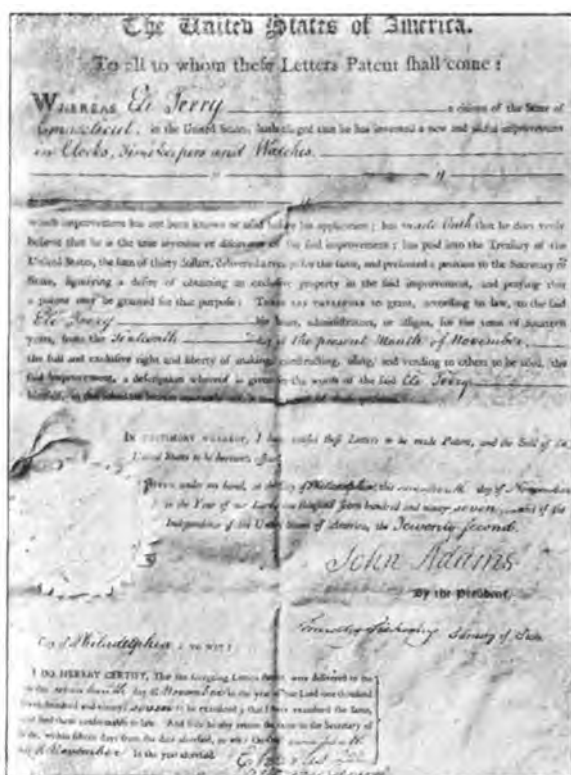 The United States of America.
To all to whom these Letters Patent shall come:
WHEREAS Eli Terry a citizen of the State of
Connecticut, in the United States, hath alleged that he has invented a new and useful improvement
in Clocks, Timekeepers and Watches.
"                    "
"
which improvement has not been known or used before his application; has made Oath that he does verily
believe that he is the true inventor or discoverer of the said improvement; has paid into the Treasury of the
United States, the sum of thirty dollars, delivered a receipt for the same, and presented a petition to the Secretary of
State, signifying a desire of obtaining an exclusive property in the said improvement, and praying that
a patent may be granted for that purpose: THESE ARE THEREFORE to grant, according to law, to the said
Eli Terry his heirs, administrators, or assigns, for the term of fourteen
years, from the day of the present Month of November,
the full and exclusive right and liberty of making, constructing, using, and vending to others to be used, the
said improvement, a description whereof is given in the words of the said Eli Terry
himself, in the
IN TESTIMONY WHEREOF, I have caused these Letters to be made Patent, and the Seal of the
United States to be hereunto affixed.
GIVEN under my hand, at the City of Philadelphia this seventeenth day of November
in the Year of our Lord, one thousand seven hundred and ninety seven and of the
Independence of the United States of America, the Twenty second.
John Adams
By the President.
Timothy Pickering Secretary of State
City of Philadelphia TO WIT:
I DO HEREBY CERTIFY, That the foregoing Letters Patent, were delivered to me
on the day of November in the year of our Lord one thousand
seven hundred and ninety seven to be examined; that I have examined the same,
and find them conformable to law. And I do hereby return the same to the Secretary of
State, within fifteen days from the date aforesaid, to wit: On this
day of November In the year aforesaid.